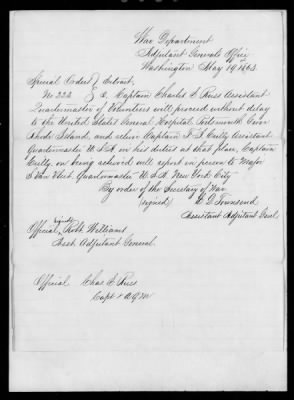 War Department
Adjutant General's Office
Washington May 19th 1863.
Special Orders } Extract,
No 222 } 8, Captain Charles F. Russ Assistant
Quartermaster of Volunteers will proceed without delay
to the United States General Hospital Portsmouth Grove
Rhode Island, and relieve Captain Assistant
Quartermaster U.S.A. on his duties at that place, Captain
on being relieved will report in person to Major
S Van Vliet Quartermaster U.S.A. New York City.
By order of the Secretary of War
(signed) E. D. Townsend
Assistant Adjutant Genl.
Official, signed Robt Williams
Asst. Adjutant General
Official Chas F. Russ
Capt & AQM